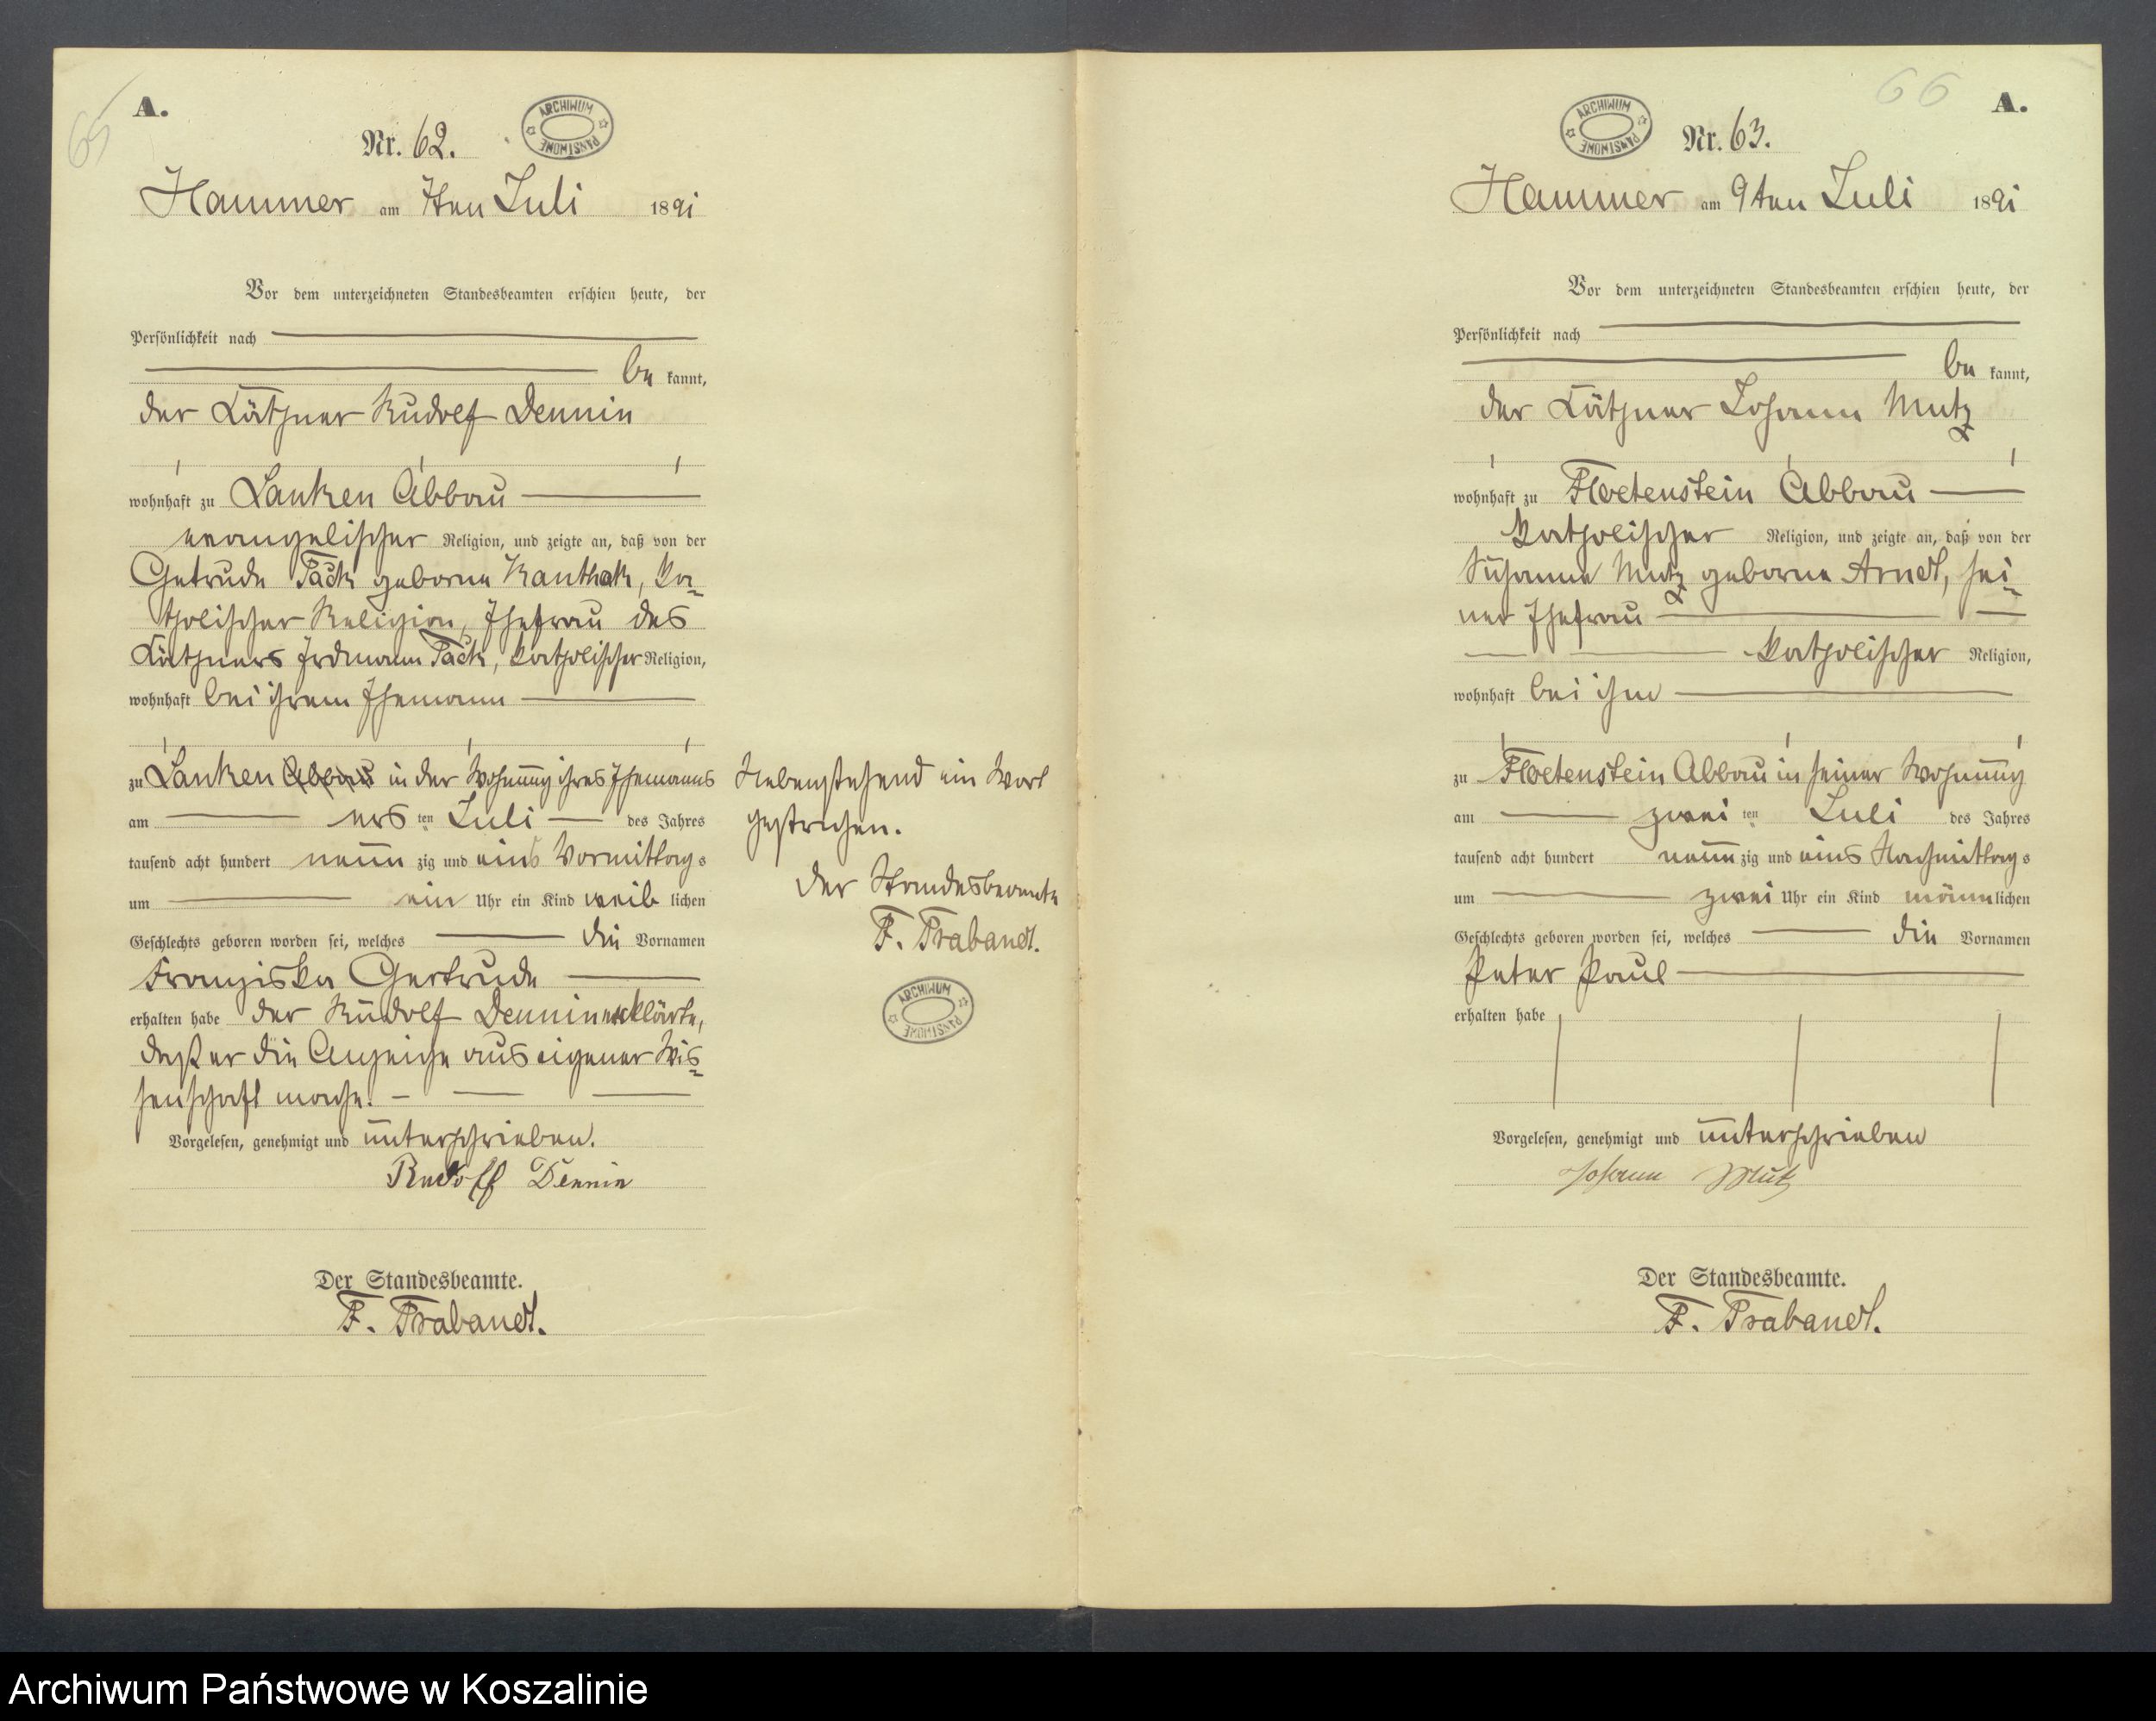 65
A.
Nr. 62.
ARCHIWUM PAŃSTWOWE
Hammer am 7ten Juli 1891
Vor dem unterzeichneten Standesbeamten erschien heute, der
Persönlichkeit nach
be kannt,
der Käthner Rudolf Dennin
wohnhaft zu Lanken Abbau
evangelischer Religion, und zeigte an, daß von der
Getrude Päck geborne Kanthak, ka-
tholischer Religion, Ehefrau des
Käthners Erdmann Päck, katholischer Religion,
wohnhaft bei ihrem Ehemann
zu Lanken Abbau in der Wohnung ihres Ehemanns
am ers ten Juli des Jahres
tausend acht hundert neun zig und eins Vormittag s
um ein Uhr ein Kind weib lichen
Geschlechts geboren worden sei, welches die Vornamen
Franziska Gertrude
erhalten habe der Rudolf Dennin erklärte,
daß er die Anzeige aus eigener Wis-
senschaft mache.
Vorgelesen, genehmigt und unterschrieben.
Rudolf Dennin
Der Standesbeamte.
F. Trabandt.
Nebenstehend ein Wort
gestrichen.
Der Standesbeamte
F. Trabandt.
ARCHIWUM PAŃSTWOWE
66
A.
ARCHIWUM PAŃSTWOWE
Nr. 63.
Hammer am 9ten Juli 1891
Vor dem unterzeichneten Standesbeamten erschien heute, der
Persönlichkeit nach
be kannt,
der Käthner Johann Mutz
wohnhaft zu Floetenstein Abbau
katholischer Religion, und zeigte an, daß von der
Susanna Mutz geborne Arndt, sei-
ner Ehefrau
katholischer Religion,
wohnhaft bei ihm
zu Floetenstein Abbau in seiner Wohnung
am zwei ten Juli des Jahres
tausend acht hundert neun zig und eins Nachmittag s
um zwei Uhr ein Kind männ lichen
Geschlechts geboren worden sei, welches die Vornamen
Peter Paul
erhalten habe
Vorgelesen, genehmigt und unterschrieben
Johann Mutz
Der Standesbeamte.
F. Trabandt.
Archiwum Państwowe w Koszalinie